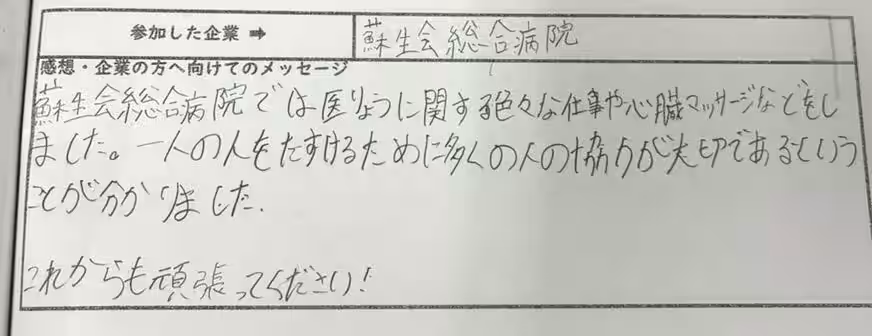 参加した企業 ➡ 蘇生会総合病院
感想・企業の方へ向けてのメッセージ
蘇生会総合病院では医りょうに関する色々な仕事や心臓マッサージなどをし
ました。一人の人をたすけるために多くの人の協力が大切であるという
ことが分かりました.
これからも頑張ってください!